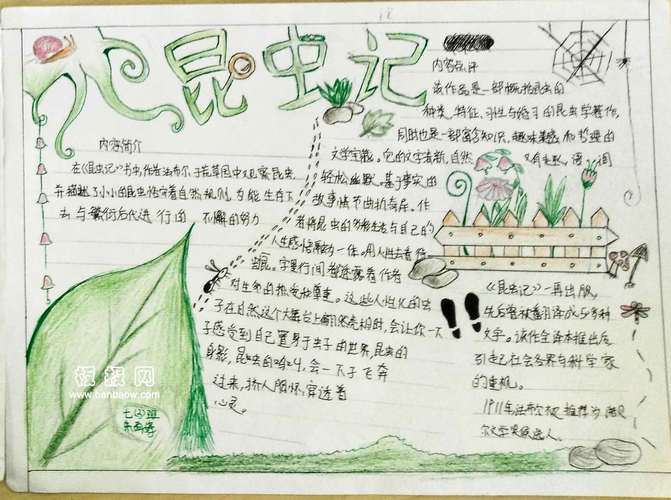 昆虫记
内容简介
在《昆虫记》书中,作者法布尔于在草园中观察昆虫,
并描述了小小的昆虫恪守着自然规则,为能生存下
去与繁衍后代进行的不懈的努力
内容点评
该作品是一部概括昆虫的
种类、特征、习性与婚习的昆虫学著作,
同时也是一部富含知识、趣味美感和哲理的
文学宝藏。它的文字清新,自然 语调
轻松幽默,基于事实的
故事情节曲折奇异。作
者将昆虫的多彩生活与自己的
人生感悟融为一体,用人性去看待
昆虫。字里行间都透露着作者
对生命的热爱和尊重。这些人性化的虫
子在自然这个大舞台上翩然亮相时,会让你一下
子感受到自己置身于虫子的世界,昆虫的
身影,昆虫的 会一下子飞奔
过来,扬人胸怀,穿透着
心灵。
《昆虫记》一再出版,
先后曾被翻译成50多种
文字。该作全译本推出后
引起社会各界与科学家
的重视。
1911年法布尔被推荐为诺贝
尔文学奖候选人。
板报网
www.banbaow.com